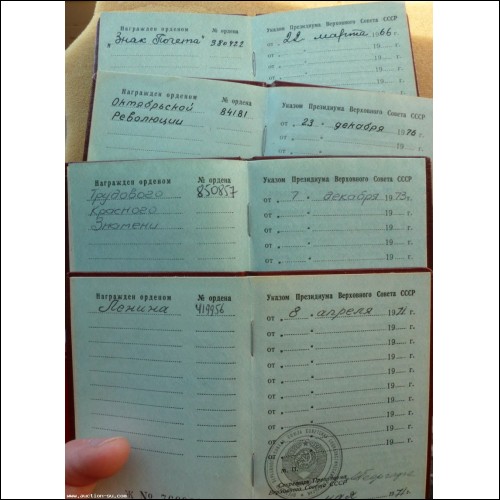 Награжден орденом № ордена
"Знак Почета" 380722
Указом Президиума Верховного Совета СССР
от " 22 " марта 1966 г.
от " " 19 г.
от " " 19 г.
Награжден орденом № ордена
Октябрьской 84181
Революции
Указом Президиума Верховного Совета СССР
от " 23 " декабря 1976 г.
от " " 19 г.
от " " 19 г.
от " " 19 г.
Награжден орденом № ордена
Трудового 850857
Красного
Знамени
Указом Президиума Верховного Совета СССР
от " 7 " декабря 1973 г.
от " " 19 г.
от " " 19 г.
от " " 19 г.
от " " 19 г.
Награжден орденом № ордена
Ленина 419956
Указом Президиума Верховного Совета СССР
от " 8 " апреля 1971 г.
от " " 19 г.
от " " 19 г.
от " " 19 г.
от " " 19 г.
от " " 19 г.
от " " 19 г.
от " " 19 г.
от " " 19 г.
М. П.
Секретарь Президиума
Верховного Совета СССР
www.auction-su.com